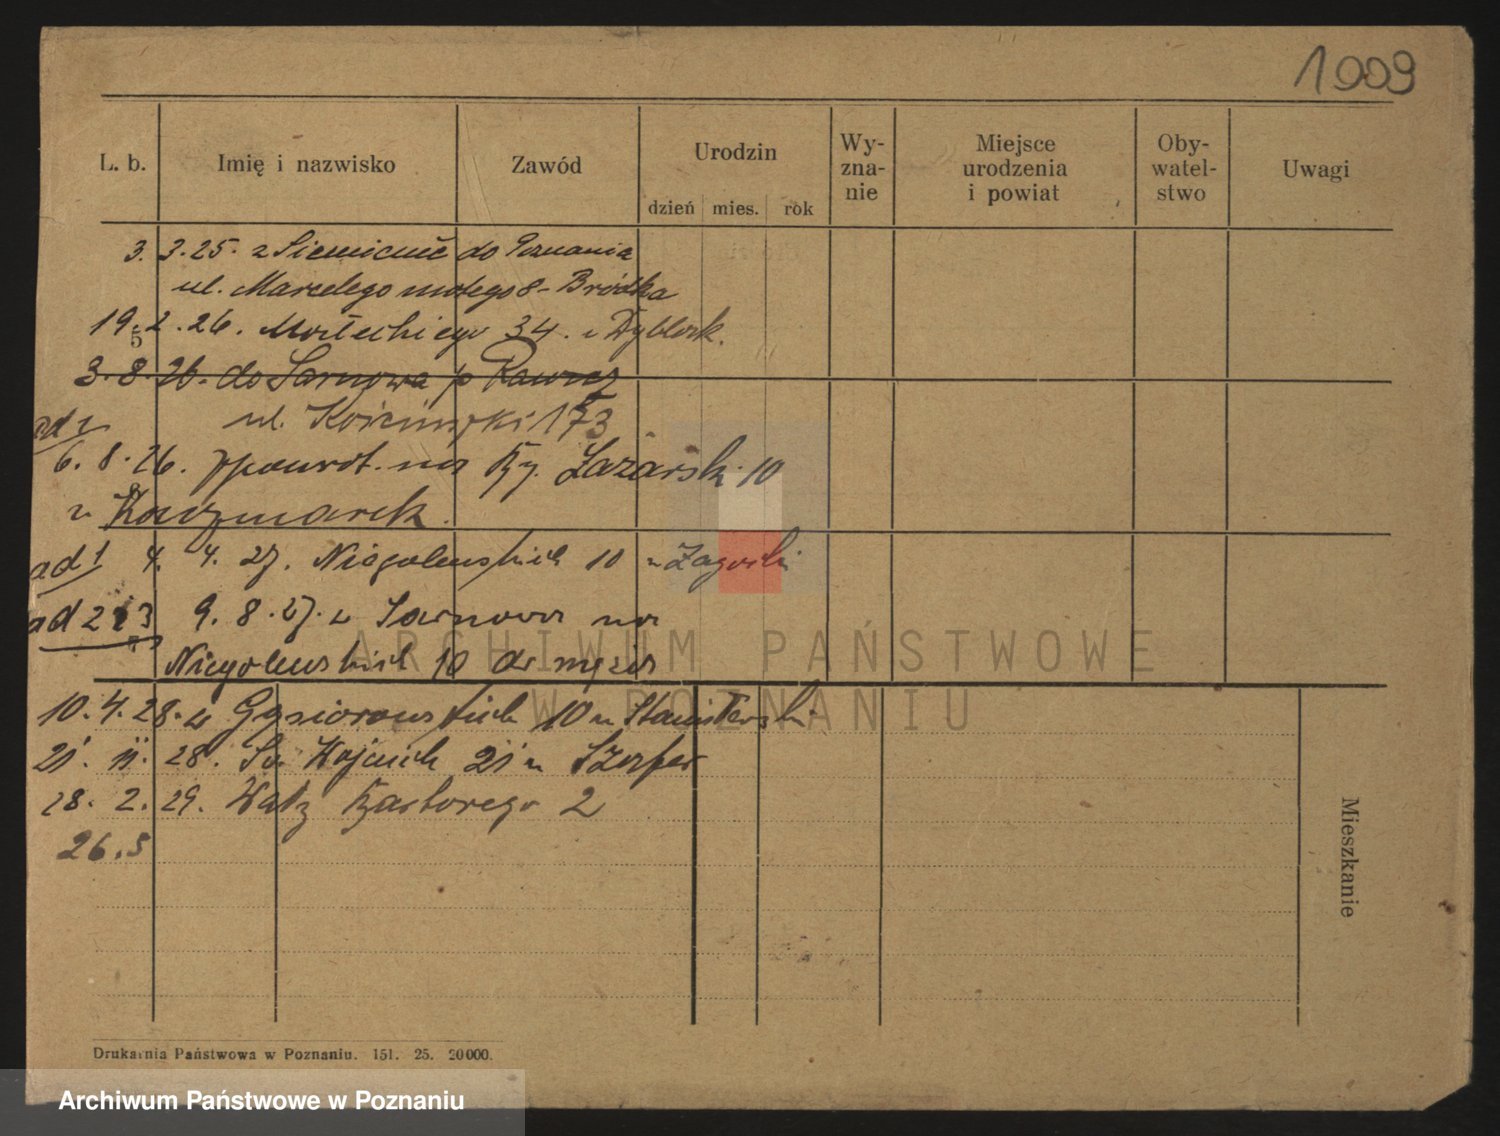 1009
L. b. Imię i nazwisko Zawód Urodzin Wy-zna-nie Miejsce urodzenia i powiat Oby-watel-stwo Uwagi
dzień mies. rok
3. 3.25. z do Poznania
ul. Marcelego 8 - Bródka
19. 2. 26. Małeckiego 34.
5
3. 8. 26. do Sarnowa p Rawicz
ul. 173
ad 2
6. 8. 26. na Ry. Łazarski 10
u Kaczmarek.
ad 1 4. 4. 27. Niegolewskich 10 u Zagórski
ad 2 i 3 9. 8. 27. z Sarnowa na
Niegolewskich 10 do męża
10. 4. 28. Gąsiorowskich 10 u
21. 11. 28. Św. Wojciech 21 u
28. 2. 29. 2
26.5
Mieszkanie
Drukarnia Państwowa w Poznaniu. 151. 25. 20000.
ARCHIWUM PAŃSTWOWE
W POZNANIU
Archiwum Państwowe w Poznaniu